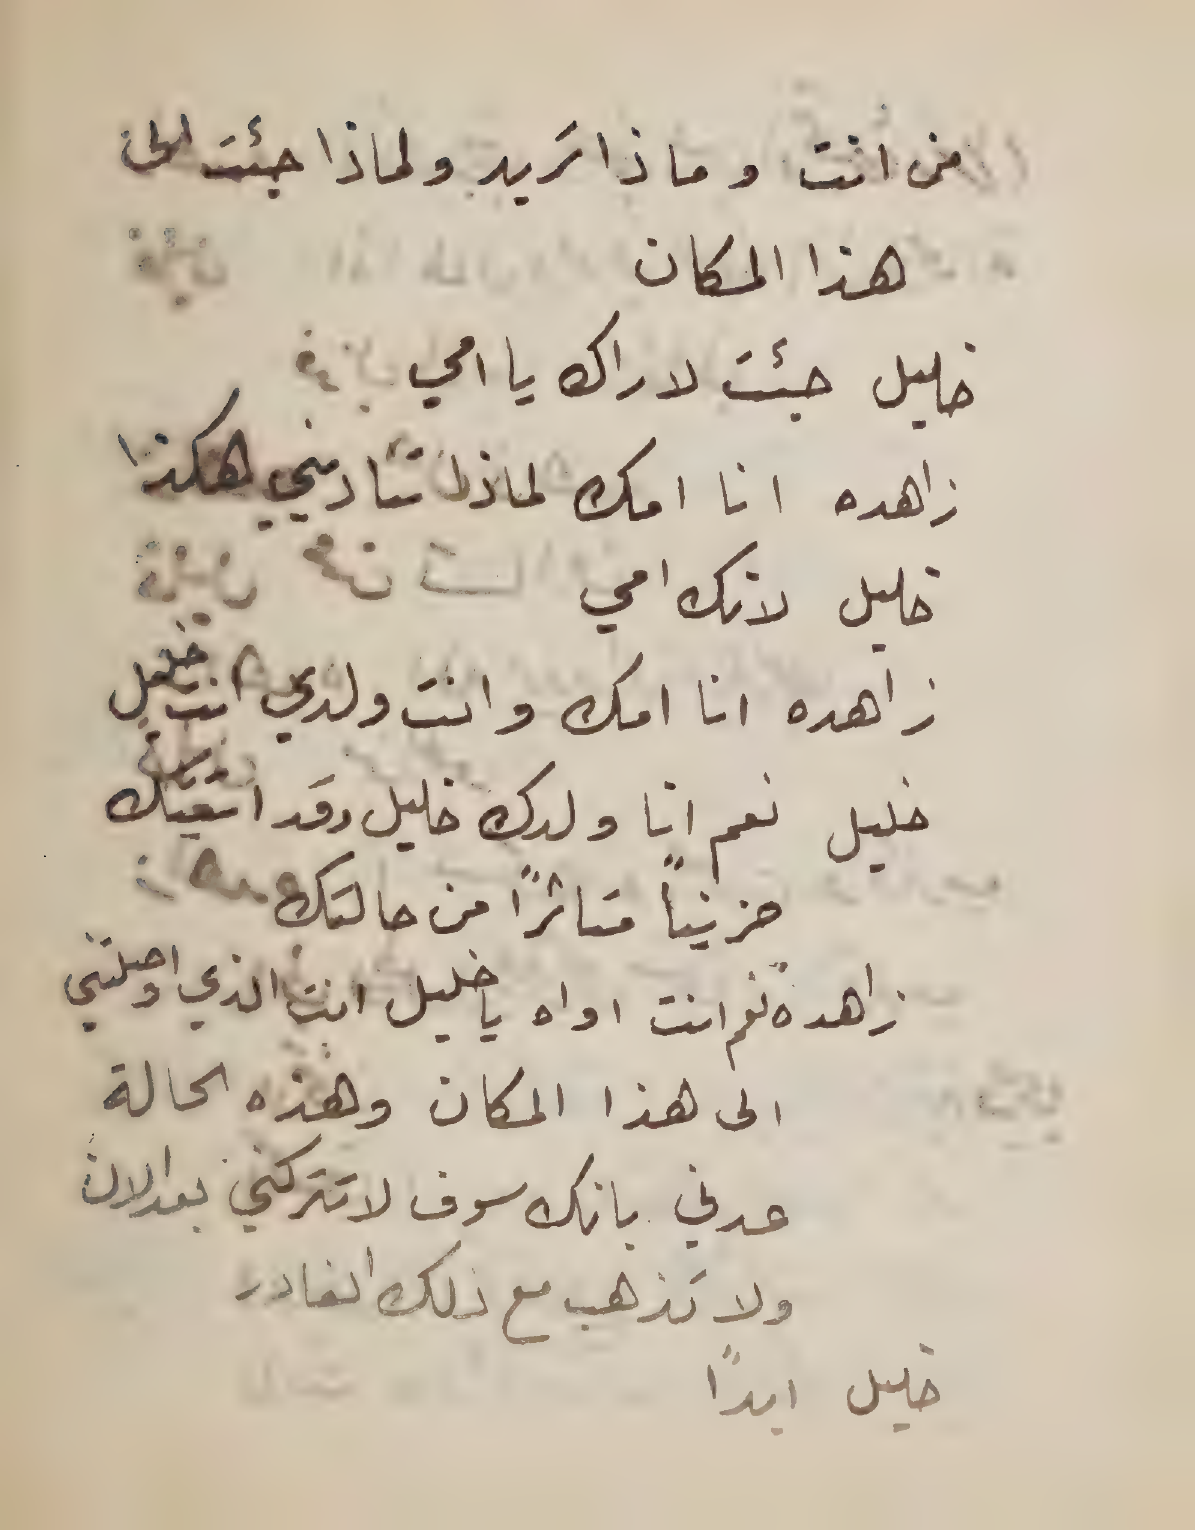 من انت و ماذا تريد ولماذا جئت الى
هذا المكان
خليل جئت لاراك يا امي
زاهده انا امك لماذا تناديني هكذا
خليل لانك امي
زاهده انا امك وانت ولدي انت خليل
خليل نعم انا ولدك خليل وقد اتيتك
حزيناً متاثرًا من حالتك
زاهدة نعم انت اواه يا خليل انت الذي اوصلتني
الى هذا المكان وهذه الحالة
عدني بانك سوف لا تتركني بعد الان
ولا تذهب مع ذلك الغادر
خليل ابدًا